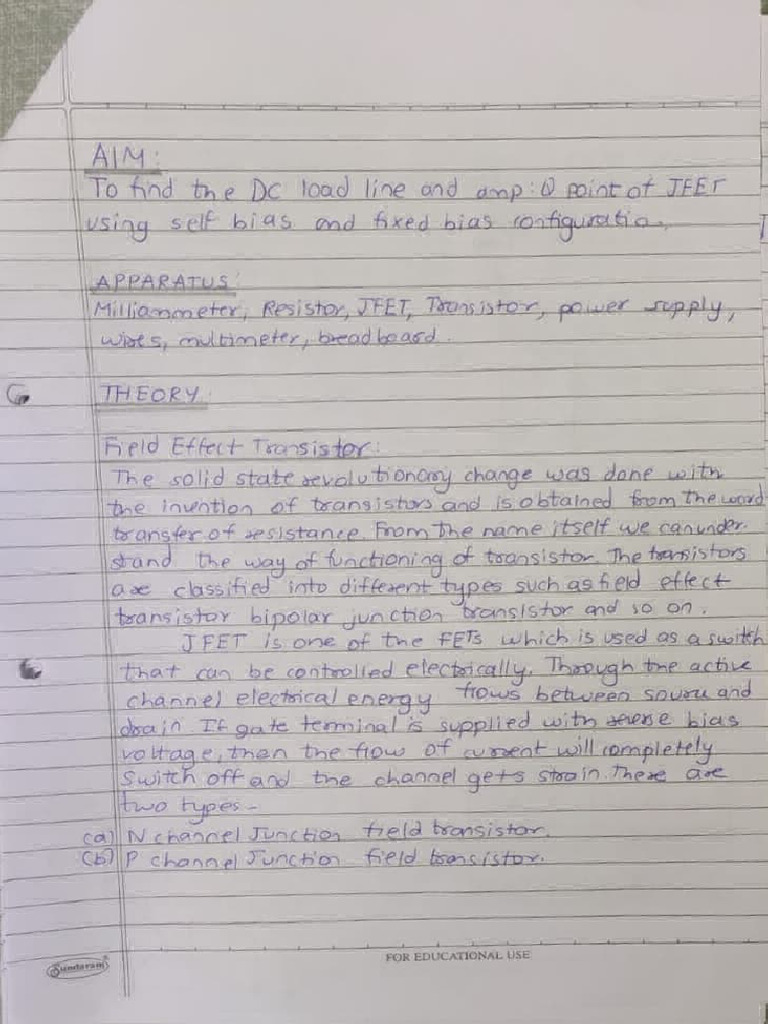 AIM:
To find the DC load line and amp: Q point of JFET
using self bias and fixed bias configuratio
APPARATUS:
Milliammeter, Resistor, JFET, Transistor, power supply,
wires, multimeter, bread board.
THEORY:
Field Effect Transistor:
The solid state revolutionary change was done with
the invention of transistors and is obtained from the word
transfer of resistance. From the name itself we can under-
stand the way of functioning of transistor. The transistors
are classified into different types such as field effect
transistor bipolar junction transistor and so on.
JFET is one of the FETs which is used as a switch
that can be controlled electrically. Through the active
channel electrical energy flows between source and
drain. If gate terminal is supplied with reverse bias
voltage, then the flow of current will completely
Switch off and the channel gets strain. There are
two types -
(a) N channel Junction field transistor.
(b) P channel Junction field transistor.
Sundaram
FOR EDUCATIONAL USE